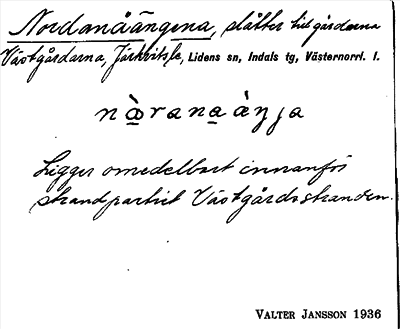 Nordanåängena, slåtter till gårdarna
Västgårdarna, Järkvitsle, Lidens sn, Indals tg, Västernorrl. l.
nò̠rana̠àŋja
Ligger omedelbart innanför
strandpartiet Västgårdsstranden.
VALTER JANSSON 1936